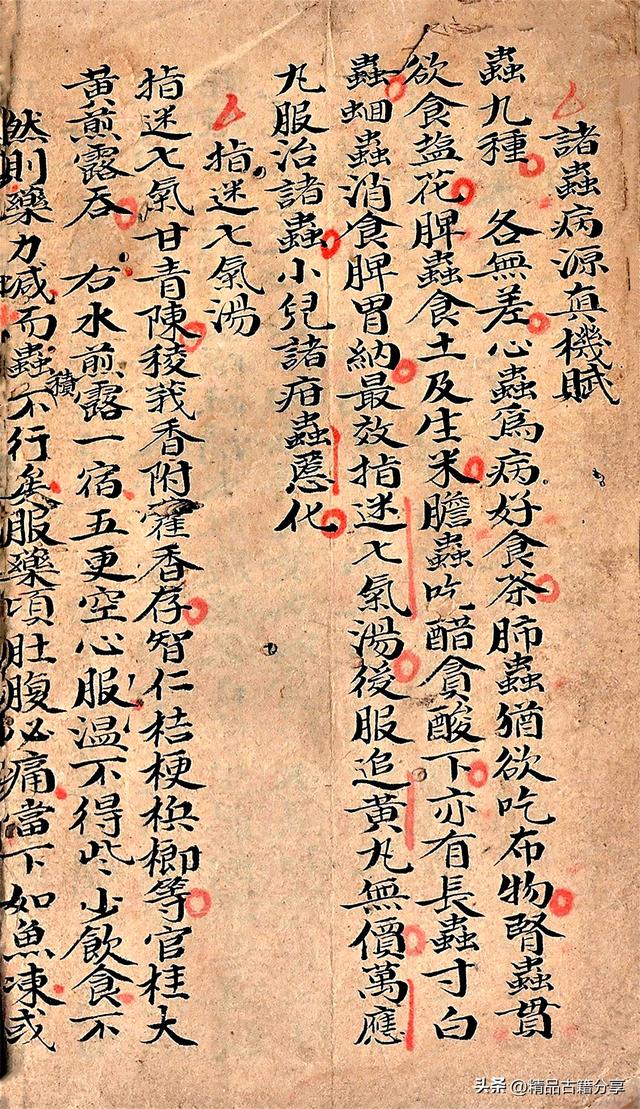 諸蟲病源真機賦
蟲九種 各無差心蟲爲病好食茶肺蟲猶欲吃布物腎蟲貫
欲食盐花脾蟲食土及生米膽蟲吃醋貪酸下亦有長蟲寸白
蟲蛔蟲消食脾胃納最效指迷七氣湯後服追黃丸無價萬應
丸服治諸蟲小兒諸疳蟲慝化
指迷七氣湯
指迷七氣甘青陳稜莪香附藿香存智仁桔梗梹榔等官桂大
黃煎露吞 右水煎露一宿五更空心服温不得些少飲食不
然則藥力減而蟲積不行矣服藥項肚腹必痛當下如魚凍或
头条 @精品古籍分享